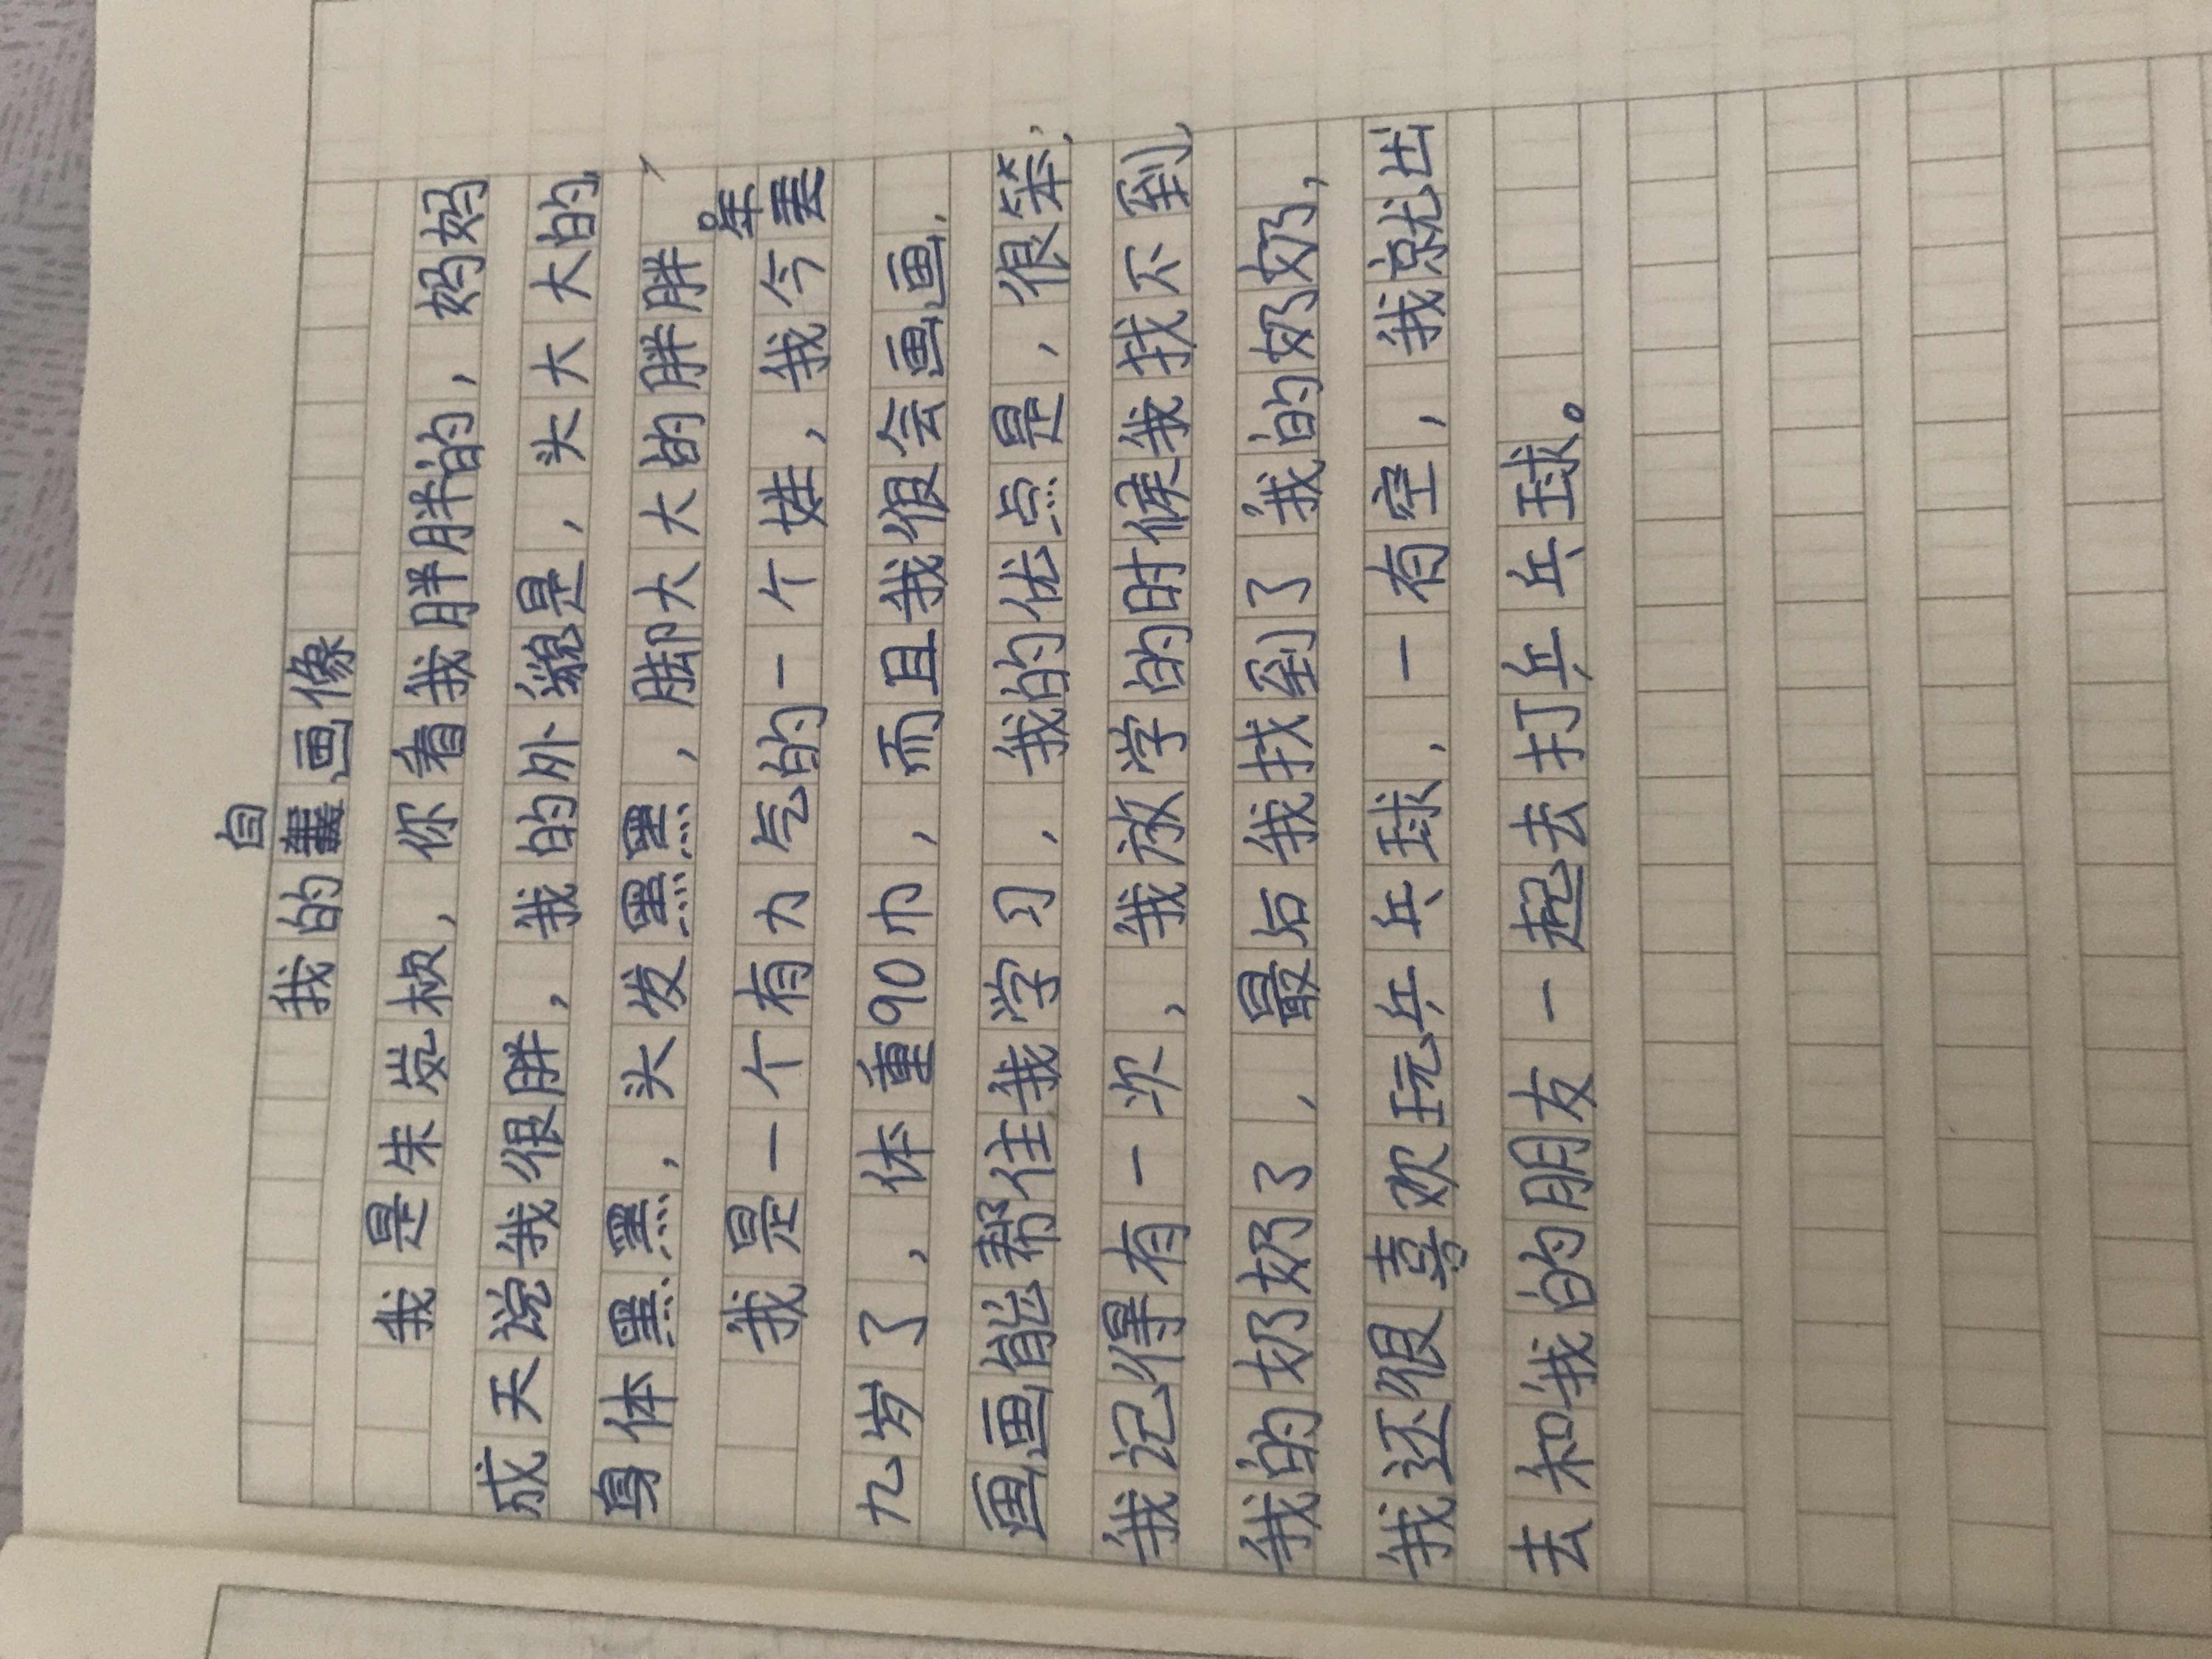 我的自画像
我是朱发极，你看我胖胖的，妈妈
成天说我很胖，我的外貌是，头大大的，
身体黑黑，头发黑黑，脚大大的胖胖。
我是一个有力气的一个娃，我今年
九岁了，体重90巾，而且我很会画画，
画画能帮住我学习，我的优点是，很笨，
我记得有一次，我放学的时候我找不到
我的奶奶了，最后我找到了我的奶奶，
我还很喜欢玩乒乓球，一有空，我就出
去和我的朋友一起去打乒乓球。